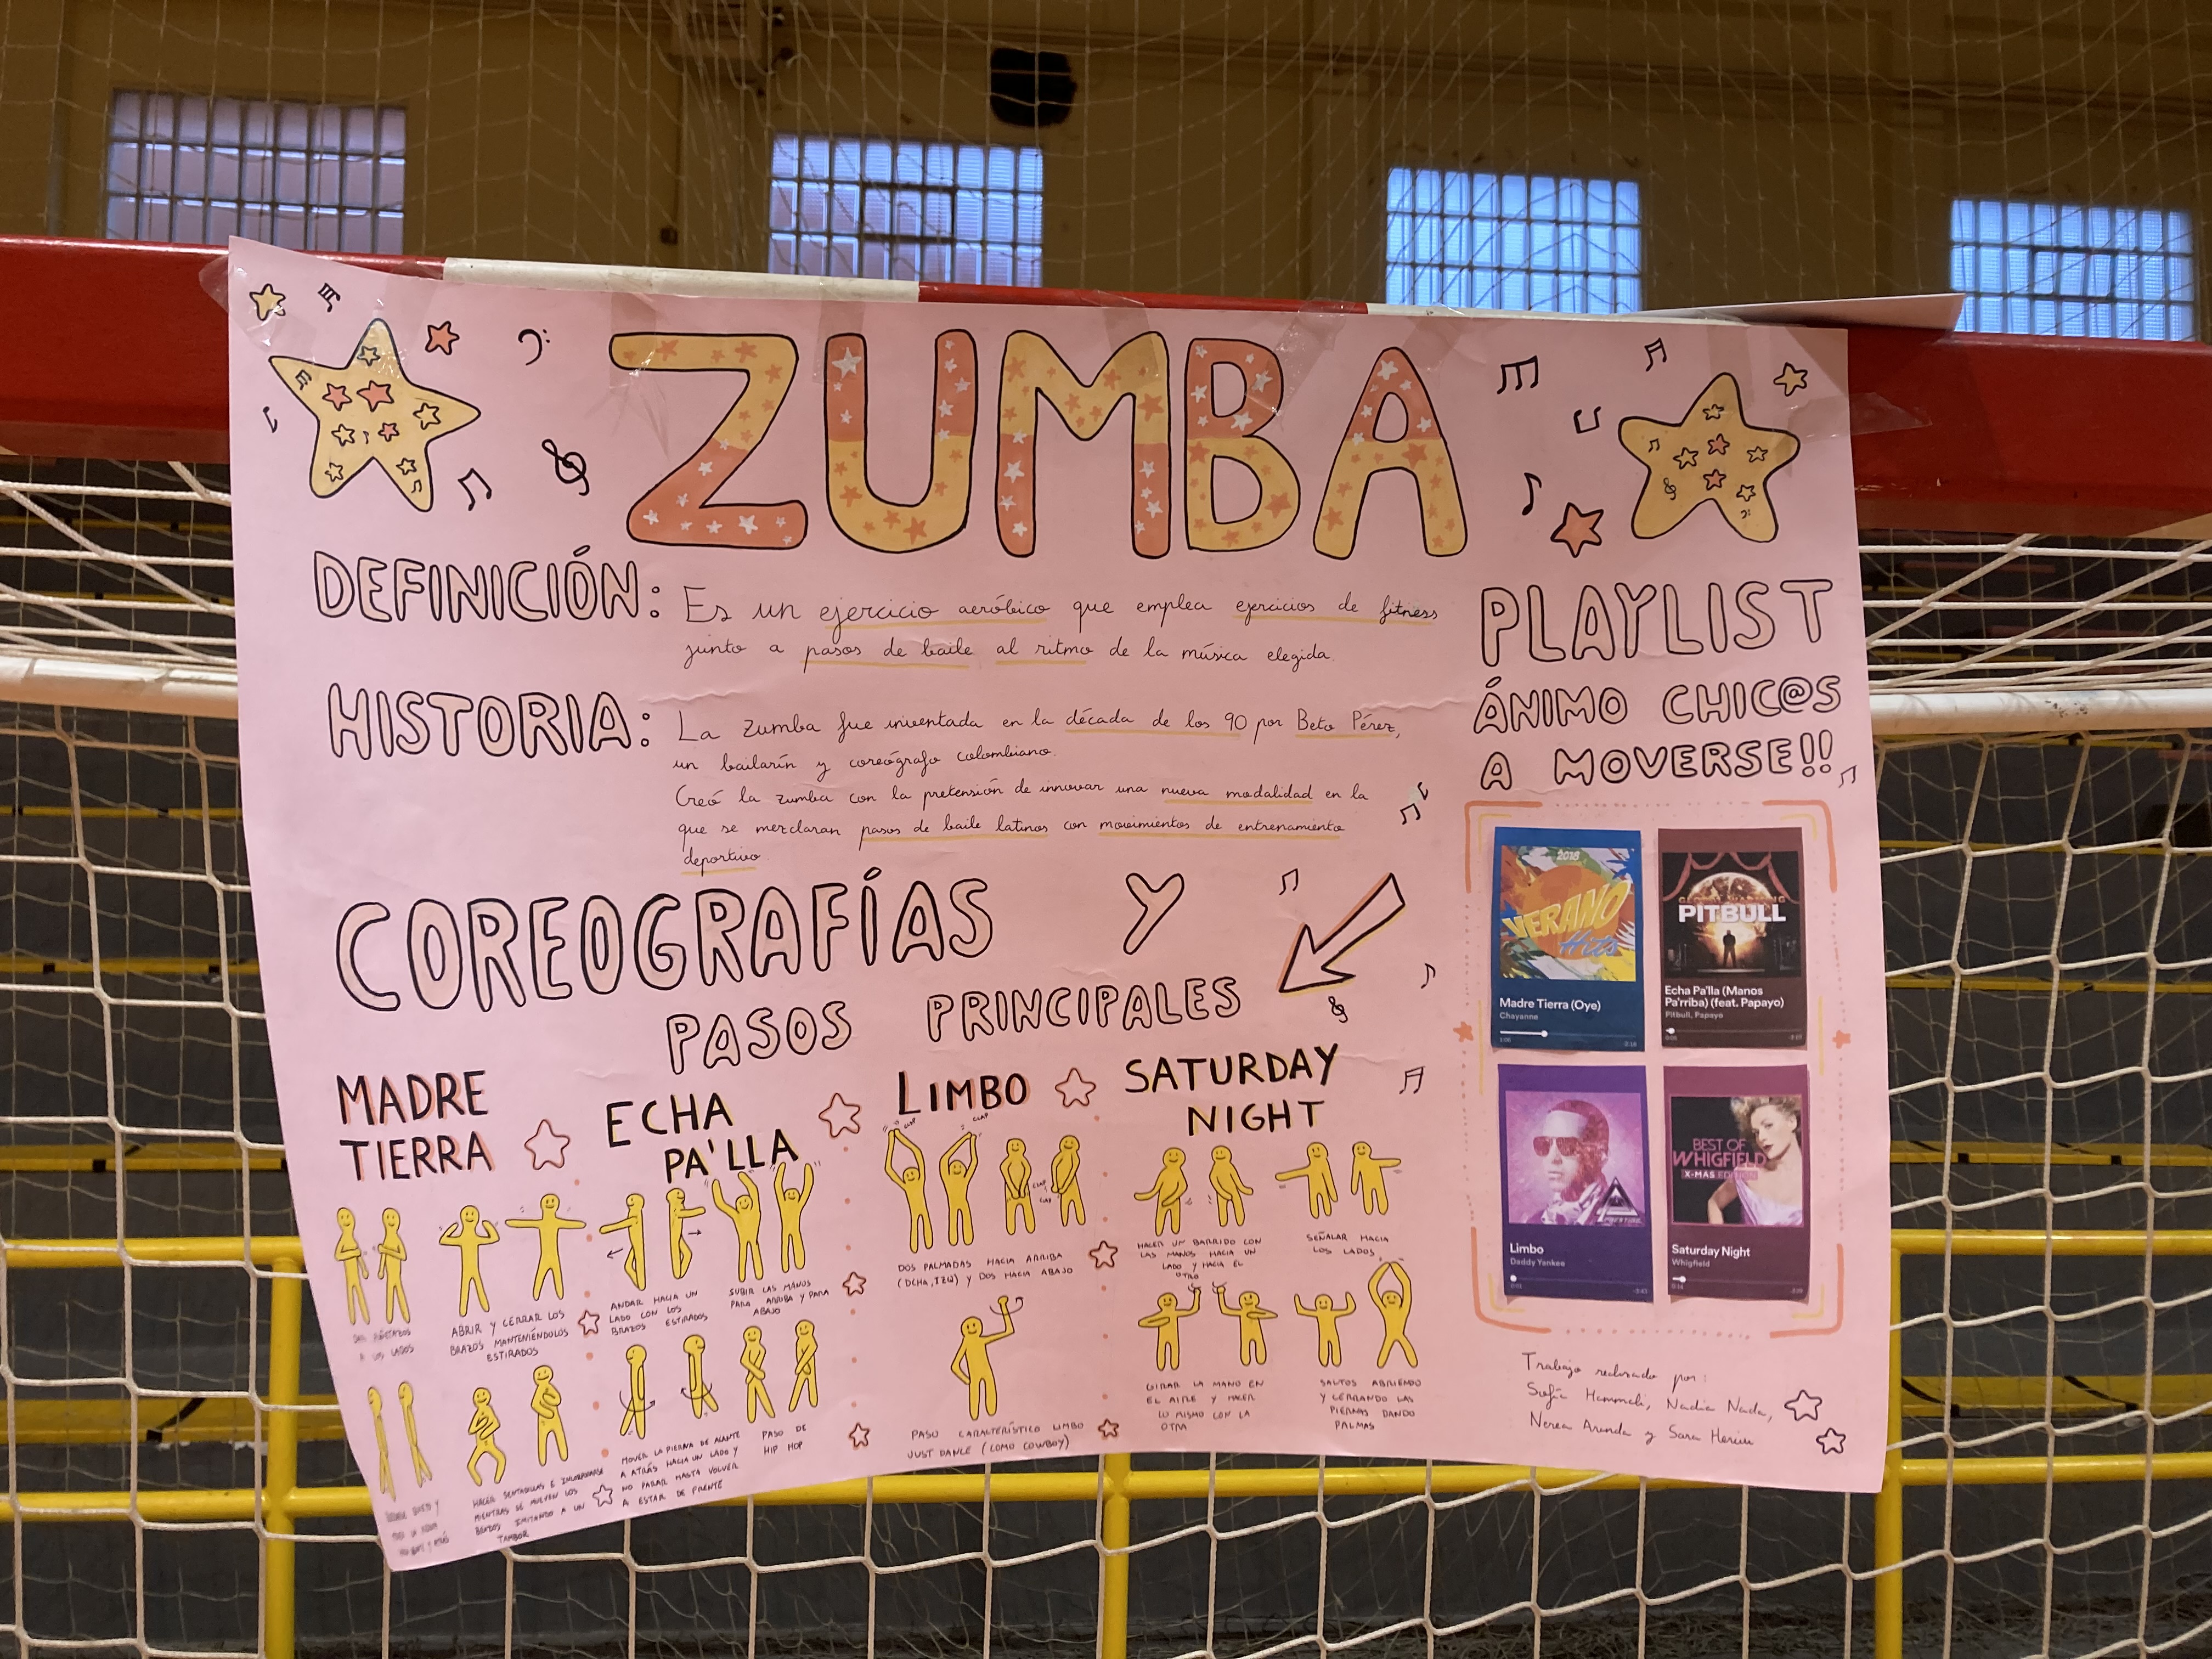 ZUMBA
DEFINICIÓN:
Es un ejercicio aeróbico que emplea ejercicios de fitness
junto a pasos de baile al ritmo de la música elegida.
HISTORIA:
La zumba fue inventada en la década de los 90 por Beto Pérez,
un bailarín y coreógrafo colombiano.
Creó la zumba con la pretensión de innovar una nueva modalidad en la
que se mezclaran pasos de baile latinos con movimientos de entrenamiento
deportivo.
COREOGRAFÍAS Y
PASOS PRINCIPALES
MADRE
TIERRA
A LOS LADOS
ABRIR Y CERRAR LOS
BRAZOS MANTENIÉNDOLOS
ESTIRADOS
HACER SENTADILLAS E INCORPORARSE
MIENTRAS SE MUEVEN LOS
BRAZOS IMITANDO A UN
TAMBOR
ECHA
PA'LLA
ANDAR HACIA UN
LADO CON LOS
BRAZOS ESTIRADOS
SUBIR LAS MANOS
PARA ARRIBA Y PARA
ABAJO
MOVER LA PIERNA DE ALANTE
A ATRÁS HACIA UN LADO Y
NO PARAR HASTA VOLVER
A ESTAR DE FRENTE
PASO DE
HIP HOP
LIMBO
CLAP
CLAP
CLAP
CLAP
DOS PALMADAS HACIA ARRIBA
(DCHA, IZQ) Y DOS HACIA ABAJO
PASO CARACTERÍSTICO LIMBO
JUST DANCE (COMO COWBOY)
SATURDAY
NIGHT
HACER UN BARRIDO CON
LAS MANOS HACIA UN
LADO Y HACIA EL
OTRO
SEÑALAR HACIA
LOS LADOS
GIRAR LA MANO EN
EL AIRE Y HACER
LO MISMO CON LA
OTRA
SALTOS ABRIENDO
Y CERRANDO LAS
PIERNAS DANDO
PALMAS
PLAYLIST
ÁNIMO CHIC@S
A MOVERSE!!
2018
VERANO
Hits
Madre Tierra (Oye)
Chayanne
GLOBAL WARMING
PITBULL
Echa Pa'lla (Manos
Pa'rriba) (feat. Papayo)
Pitbull, Papayo
Limbo
Daddy Yankee
BEST OF
WHIGFIELD
X-MAS EDITION
Saturday Night
Whigfield
Trabajo realizado por:
Sofía Hammali, Nadia Nada,
Nerea Aranda y Sara